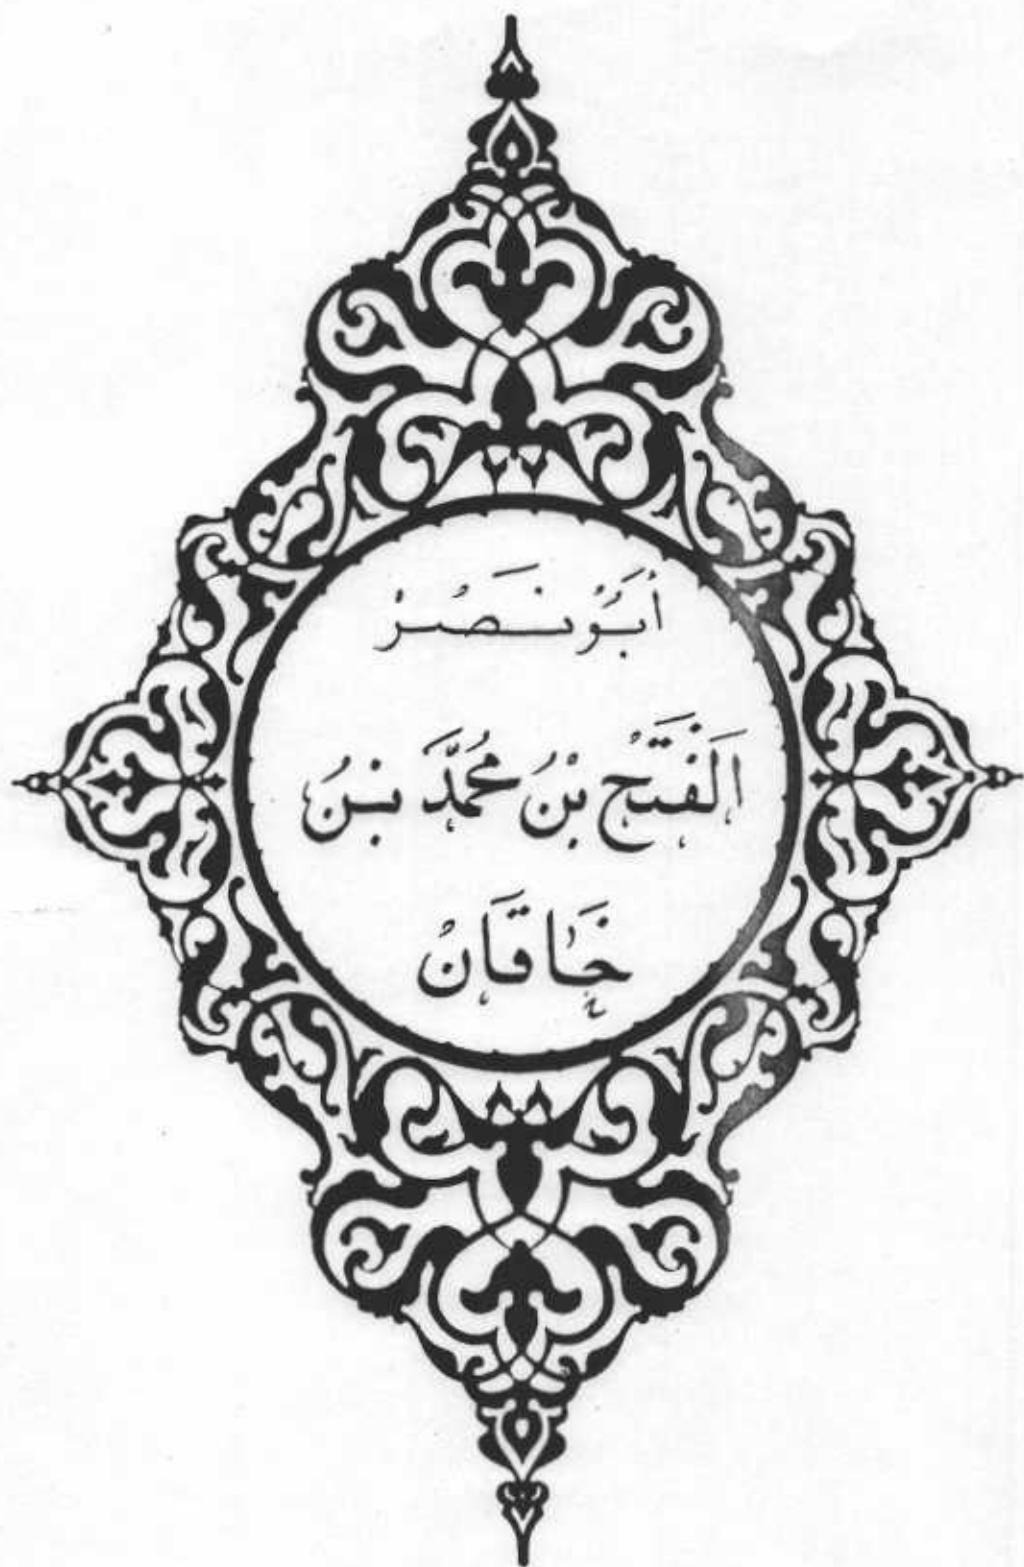 أَبُو نَصْرْ
اَلْفَتَحْ بْنُ مُحَمَّدَ بْنُ
خَاقَانُ